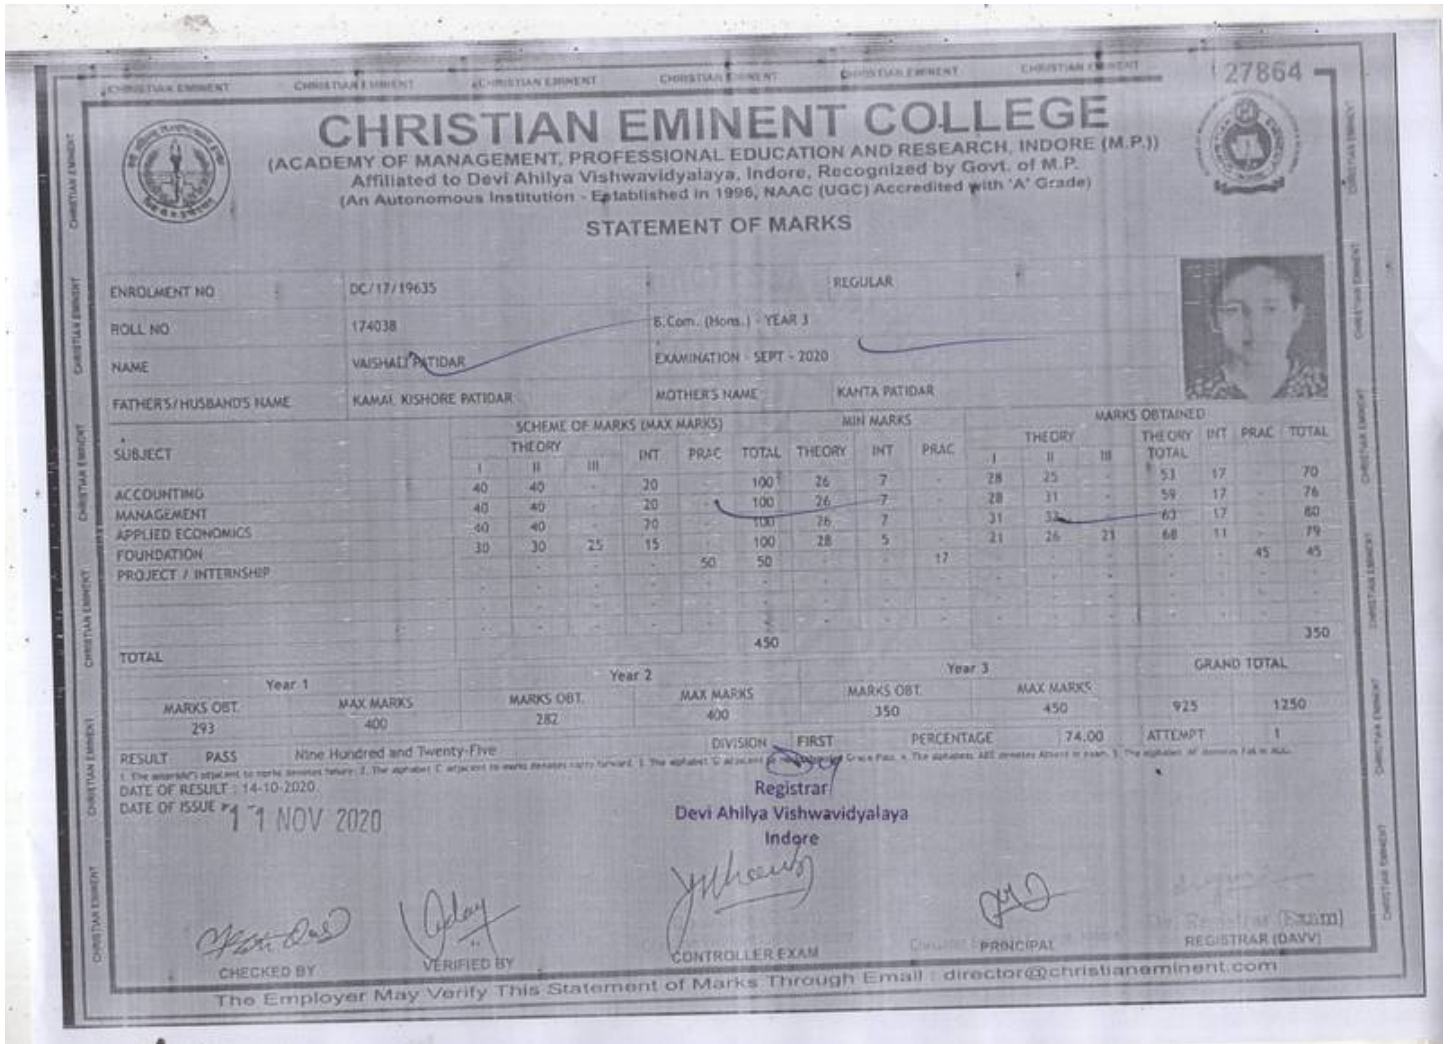 CHRISTIAN EMINENT CHRISTIAN EMINENT CHRISTIAN EMINENT CHRISTIAN EMINENT CHRISTIAN EMINENT CHRISTIAN EMINENT
27864
CHRISTIAN EMINENT COLLEGE
(ACADEMY OF MANAGEMENT, PROFESSIONAL EDUCATION AND RESEARCH, INDORE (M.P.))
Affiliated to Devi Ahilya Vishwavidyalaya, Indore, Recognized by Govt. of M.P.
(An Autonomous Institution - Established in 1996, NAAC (UGC) Accredited with 'A' Grade)
STATEMENT OF MARKS
ENROLMENT NO DC/17/19635 REGULAR
ROLL NO 174038 B.Com. (Hons.) - YEAR 3
NAME VAISHALI PATIDAR EXAMINATION - SEPT - 2020
FATHER'S/HUSBAND'S NAME KAMAL KISHORE PATIDAR MOTHER'S NAME KANTA PATIDAR
SCHEME OF MARKS (MAX MARKS) MIN MARKS MARKS OBTAINED
SUBJECT THEORY INT PRAC TOTAL THEORY INT PRAC THEORY THEORY TOTAL INT PRAC TOTAL
I II III I II III
ACCOUNTING 40 40 - 20 - 100 26 7 - 28 25 - 53 17 - 70
MANAGEMENT 40 40 - 20 - 100 26 7 - 28 31 - 59 17 - 76
APPLIED ECONOMICS 40 40 - 20 - 100 26 7 - 31 32 - 63 17 - 80
FOUNDATION 30 30 25 15 - 100 28 5 - 21 26 21 68 11 - 79
PROJECT / INTERNSHIP - - - - 50 50 - - 17 - - - - - 45 45
TOTAL 450 350
Year 1 Year 2 Year 3 GRAND TOTAL
MARKS OBT. MAX MARKS MARKS OBT. MAX MARKS MARKS OBT. MAX MARKS
293 400 282 400 350 450 925 1250
RESULT PASS Nine Hundred and Twenty-Five DIVISION FIRST PERCENTAGE 74.00 ATTEMPT 1
DATE OF RESULT : 14-10-2020
DATE OF ISSUE 11 NOV 2020
Registrar
Devi Ahilya Vishwavidyalaya
Indore
CHECKED BY VERIFIED BY CONTROLLER EXAM PRINCIPAL REGISTRAR (DAVV)
The Employer May Verify This Statement of Marks Through Email : director@christianeminent.com